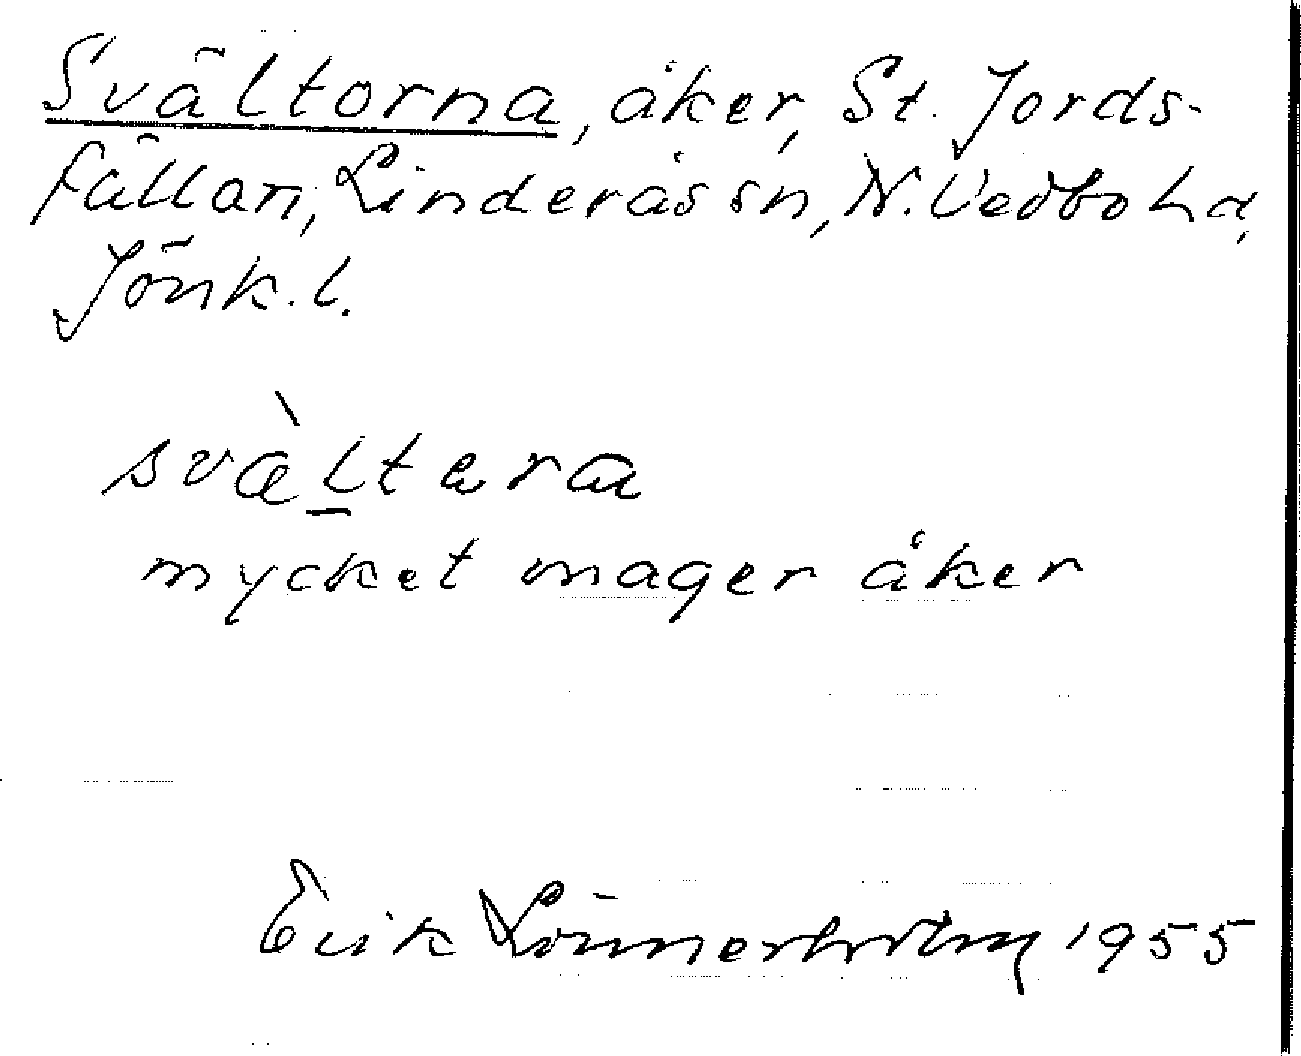 Svältorna, åker, St. Jords-
fällan, Linderås sn, N. Vedbo hd,
Jönk. l.
svæ̀ltera
mycket mager åker
Erik Lönnerholm 1955